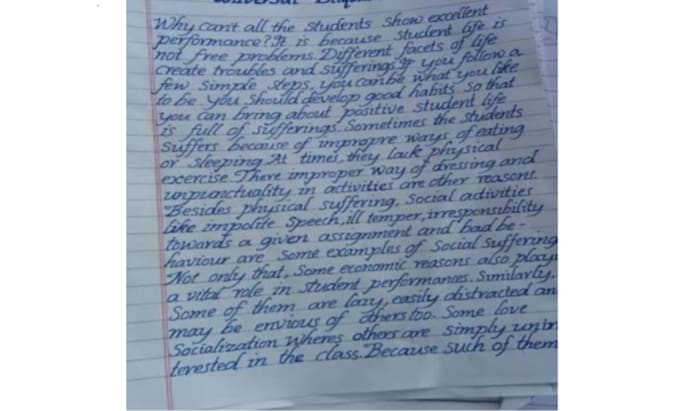 Why can't all the students show excellent
performance? It is because student life is
not free problems. Different facets of life
create troubles and sufferings. If you follow a
few simple steps, you can be what you like
to be you should develop good habits so that
you can bring about positive student life
is full of sufferings. Sometimes the students
suffers because of impropre ways of eating
or sleeping. At times, they lack physical
exercise. There improper way of dressing and
unpunctuality in activities are other reasons.
Besides physical suffering, social activities
like impolite speech, ill temper, irresponsibility
towards a given assignment and bad be-
haviour are some examples of social suffering
Not only that, some economic reasons also plays
a vital role in student performances. Sumilarly,
Some of them are lazy, easily distracted an
may be envious of others too. Some love
Socialization wheres others are simply unin
terested in the class. Because such of them